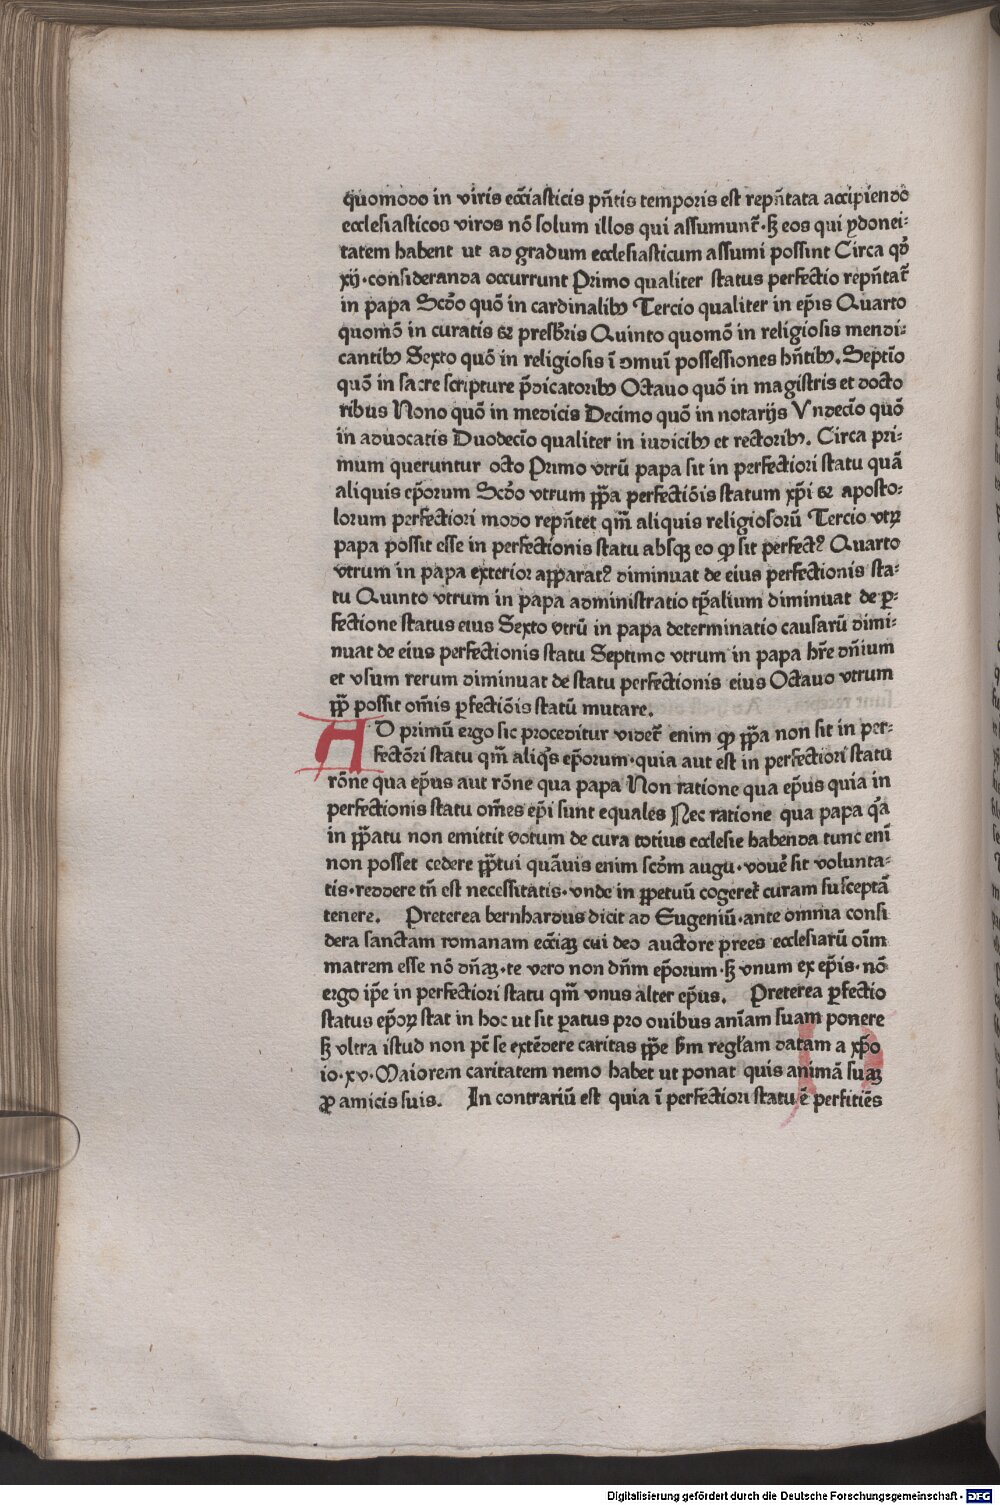 quomodo in viris ecc̄iasticis pn̄tis temporis est repn̄tata accipiendo
ecclesiasticos viros nō solum illos qui assumunt̄·sꝫ eos qui ydonei⸗
tatem habent ut ad gradum ecclesiasticum assumi possint Circa qđ
xij·consideranda occurrunt Primo qualiter status perfectio repn̄tat̄
in papa Scđo quō in cardinalibꝰ Tercio qualiter in ep̄is Quarto
quomō in curatis et presb̄ris Quinto quomō in religiosis mendi⸗
cantibꝰ Sexto quō in religiosis ī ꝯmuī possessiones hn̄tibꝰ. Septīo
quō in sacre scripture p̄dicatoribꝰ Octauo quō in magistris et docto
ribus Nono quō in medicis Decimo quō in notarijs Vndecīo quō
in aduocatis Duodecīo qualiter in iudicibꝰ et rectoribꝰ. Circa pri⸗
mum queruntur octo Primo vtrū papa sit in perfectiori statu quā
aliquis ep̄orum Scđo vtrum pp̄a perfectiōis statum xp̄i et aposto⸗
lorum perfectiori modo repn̄tet qm̄ aliquis religiosorū Tercio vtꝝ
papa possit esse in perfectionis statu absqꝫ eo ꝙ sit perfectꝰ Quarto
vtrum in papa exterior apparatꝰ diminuat de eius perfectionis sta⸗
tu Quinto vtrum in papa administratio tp̄alium diminuat de ꝑ⸗
fectione status eius Sexto vtrū in papa determinatio causarū dimi⸗
nuat de eius perfectionis statu Septimo vtrum in papa hr̄e dn̄ium
et vsum rerum diminuat de statu perfectionis eius Octauo vtrum
pp̄ possit om̄is ꝑfectiōis statū mutare.
AD primū ergo sic proceditur videt̄ enim ꝙ pp̄a non sit in per⸗
fectōri statu qm̄ aliqͥs ep̄orum·quia aut est in perfectiori statu
rōne qua ep̄us aut rōne qua papa Non ratione qua ep̄us quia in
perfectionis statu om̄es ep̄i sunt equales Nec ratione qua papa qͣa
in pp̄atu non emittit votum de cura totius ecclesie habenda tunc enī
non posset cedere pp̄tui quāuis enim scđm augu·vouē sit volunta⸗
tis·reddere tn̄ est necessitatis·vnde in ꝑpetuū cogeret̄ curam susceptā
tenere. Preterea bernhardus dicit ad Eugeniū·ante omnia consi
dera sanctam romanam ecc̄iaꝫ cui deo auctore prees ecclesiarū oīm
matrem esse nō dn̄aꝫ·te vero non dn̄m ep̄orum·sꝫ vnum ex ep̄is·nō
ergo ip̄e in perfectiori statu qm̄ vnus alter ep̄us. Preterea ꝑfectio
status ep̄oꝝ stat in hoc ut sit paratus pro ouibus anīam suam ponere
sꝫ vltra istud non pt̄ se extēdere caritas pp̄e ẜm reglam datam a xp̄o
io·xv·Maiorem caritatem nemo habet ut ponat quis animā suaꝫ
ꝓ amicis suis. In contrariū est quia ī perfectiori statu ē perfitiēs
Digitalisierung gefördert durch die Deutsche Forschungsgemeinschaft - DFG